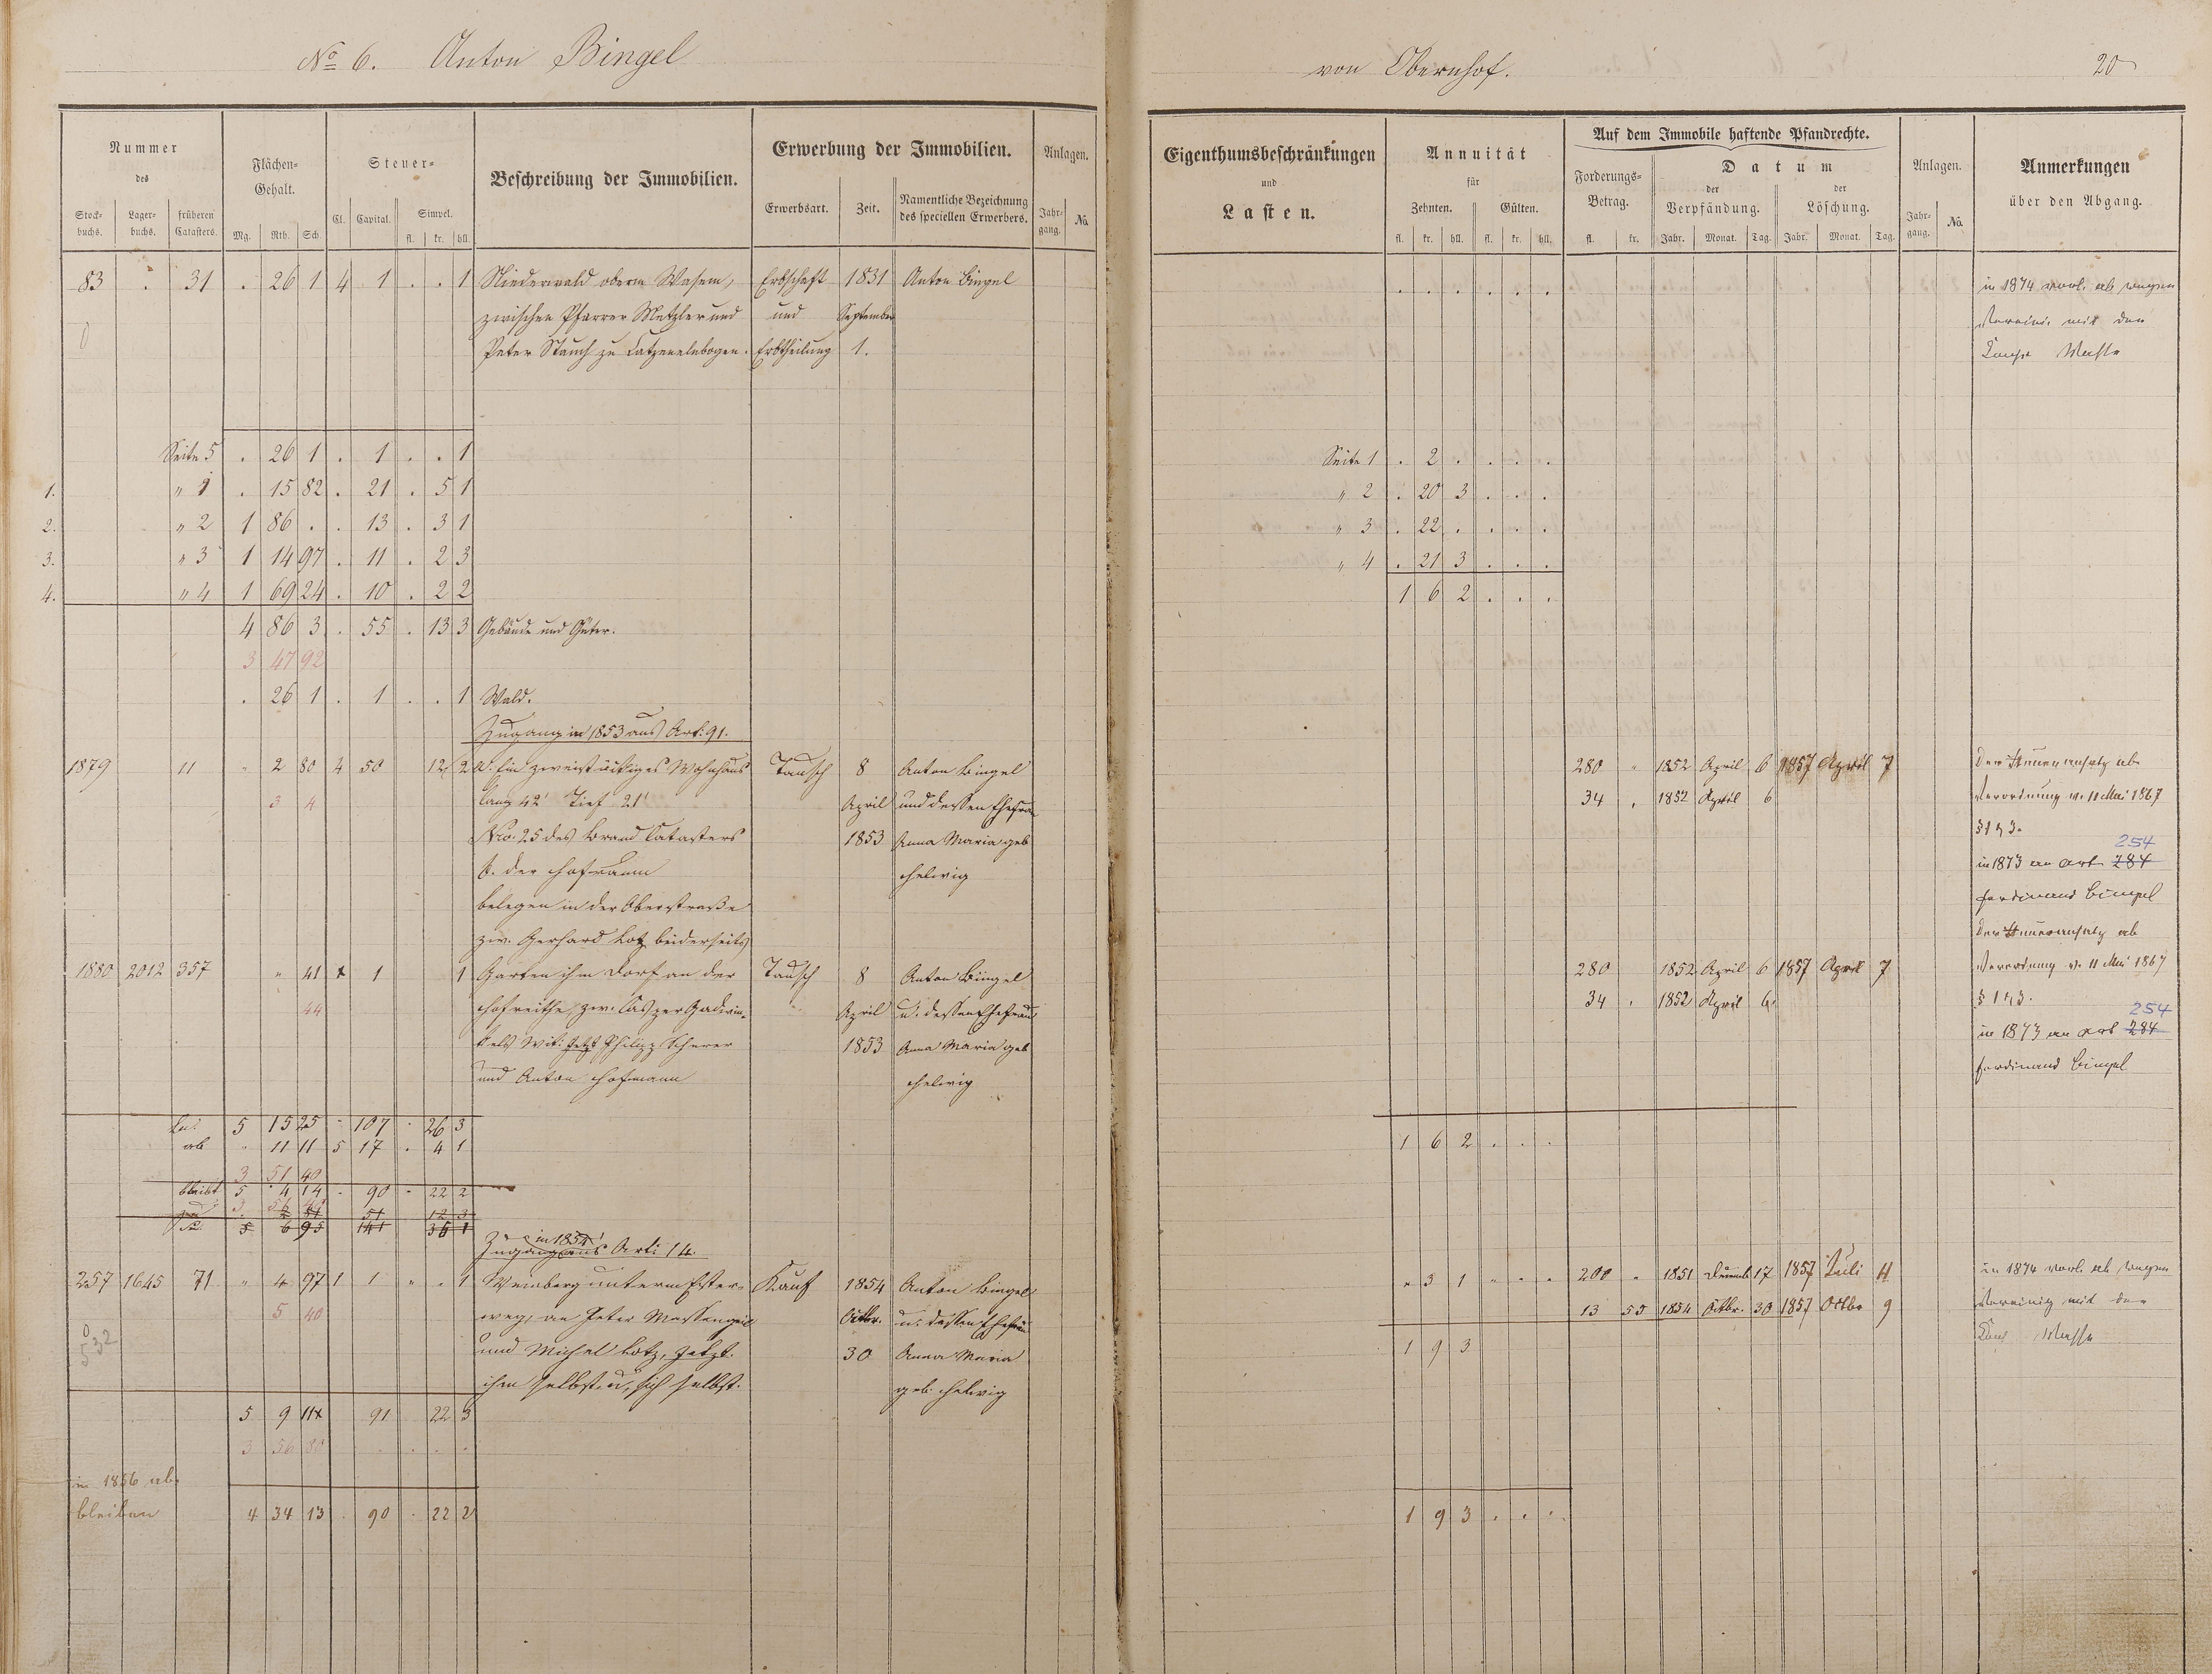 No 6. Anton Bingel
von Obernhof.
20
Nummer
des
Stock-
buchs.
Lager-
buchs.
früheren
Catasters.
Flächen-
Gehalt.
Mg. Rth. Sch.
Steuer-
Cl. Capital. Simpel.
fl. kr. hll.
Beschreibung der Immobilien.
Erwerbung der Immobilien.
Erwerbsart. Zeit.
Namentliche Bezeichnung
des speciellen Erwerbers.
Anlagen.
Jahr-
gang.
No
Eigenthumsbeschränkungen
und
Lasten.
Annuität
für
Zehnten. Gülten.
fl. kr. hll. fl. kr. hll.
Auf dem Immobile haftende Pfandrechte.
Forderungs-
Betrag.
fl. kr.
Datum
der
Verpfändung.
der
Löschung.
Jahr. Monat. Tag. Jahr. Monat. Tag.
Anlagen.
Jahr-
gang.
No
Anmerkungen
über den Abgang.
83 . 31 . 26 1 4 1 . . 1 Niederwald oberm Wasem, Erbschaft 1831 Anton Bingel . . . . . . in 1874 ab wegen
0 zwischen Pfarrer Metzler und und September mit der
Peter Stauch zu Catzenelnbogen. Erbtheilung 1. Masse
Seite 5 . 26 1 . 1 . . 1 Seite 1 . 2 . . . .
1. " 1 . 15 82 . 21 . 5 1 " 2 . 20 3 . . .
2. " 2 1 86 . . 13 . 3 1 " 3 . 22 . . . .
3. " 3 1 14 97 . 11 . 2 3 " 4 . 21 3 . . .
4. " 4 1 69 24 . 10 . 2 2 1 6 2 . . .
4 86 3 . 55 . 13 3 Gebäude und Güter.
3 47 92
. 26 1 . 1 . . 1 Wald.
Zugang in 1853 aus Art. 91.
1879 11 " 2 80 4 50 12 2 a. Ein zweistöckiges Wohnhaus Tausch 8 Anton Bingel 280 " 1852 April 6 1857 April 7 Der Steueransatz ab
3 4 lang 42' Tief 21' April und dessen Ehefrau 34 . 1852 April 6 Verordnung v. 11 Mai 1867
No. 25 des Brand Catasters 1853 Anna Maria geb
b. der Hofraum Helwig in 1873 an Art 284 254
belegen in der Oberstraße Ferdinand Bingel
zw. Gerhard Lotz beiderseits Der Steueransatz ab
1880 2012 357 " 41 4 1 1 Garten im Dorf an der Tausch 8 Anton Bingel 280 1852 April 6 1857 April 7 Verordnung v. 11 Mai 1867
44 Hofreithe, zw. April u. dessen Ehefrau 34 . 1852 April 6.
jetzt Philipp Scherer 1853 Anna Maria geb in 1873 an Art 284 254
und Anton Hofmann Helwig Ferdinand Bingel
5 15 25 - 107 . 26 3
ab " 11 11 5 17 . 4 1 1 6 2 . . .
3 51 40
bleibt 5 4 14 - 90 - 22 2
51 12 3
5 6 95 141 35 1
in 1854
Zugang aus Arti 14.
257 1645 71 " 4 97 1 1 " . 1 Weinberg unterm Kauf 1854 Anton Bingel " 3 1 " . . 200 " 1851 17 1857 Juli 11 in 1874 ab wegen
5 40 weg, an Peter Octbr. u. dessen Ehefrau 13 55 1854 Octbr. 30 1857 Octbr 9 mit der
und Michel Lotz, jetzt 30 Anna Maria 1 9 3 Masse
ihm selbst u. sich selbst. geb. Helwig
5 9 11 91 22 3
3 56 80
in 1856 ab
bleiben 4 34 13 . 90 . 22 2 1 9 3 . . .